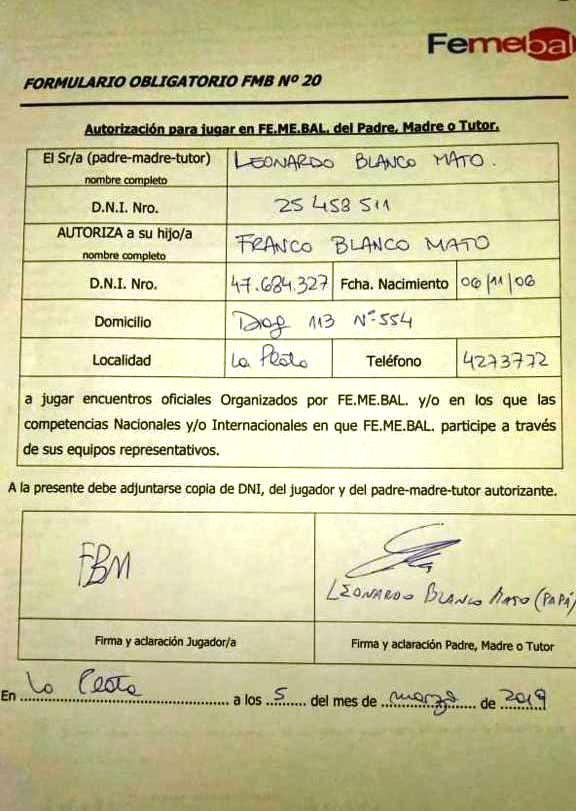 Femebal
FORMULARIO OBLIGATORIO FMB Nº 20
Autorización para jugar en FE.ME.BAL. del Padre, Madre o Tutor.
El Sr/a (padre-madre-tutor) LEONARDO BLANCO MATO.
nombre completo
D.N.I. Nro. 25 453 511
AUTORIZA a su hijo/a FRANCO BLANCO MATO
nombre completo
D.N.I. Nro. 47.684.327 Fcha. Nacimiento 06/11/06
Domicilio Diag 113 Nº 554
Localidad La Plata Teléfono 4273772
a jugar encuentros oficiales Organizados por FE.ME.BAL. y/o en los que las
competencias Nacionales y/o Internacionales en que FE.ME.BAL. participe a través
de sus equipos representativos.
A la presente debe adjuntarse copia de DNI, del jugador y del padre-madre-tutor autorizante.
FBM
LEONARDO BLANCO MATO (PAPÁ)
Firma y aclaración Jugador/a Firma y aclaración Padre, Madre o Tutor
En La Plata a los 5 del mes de marzo de 2019